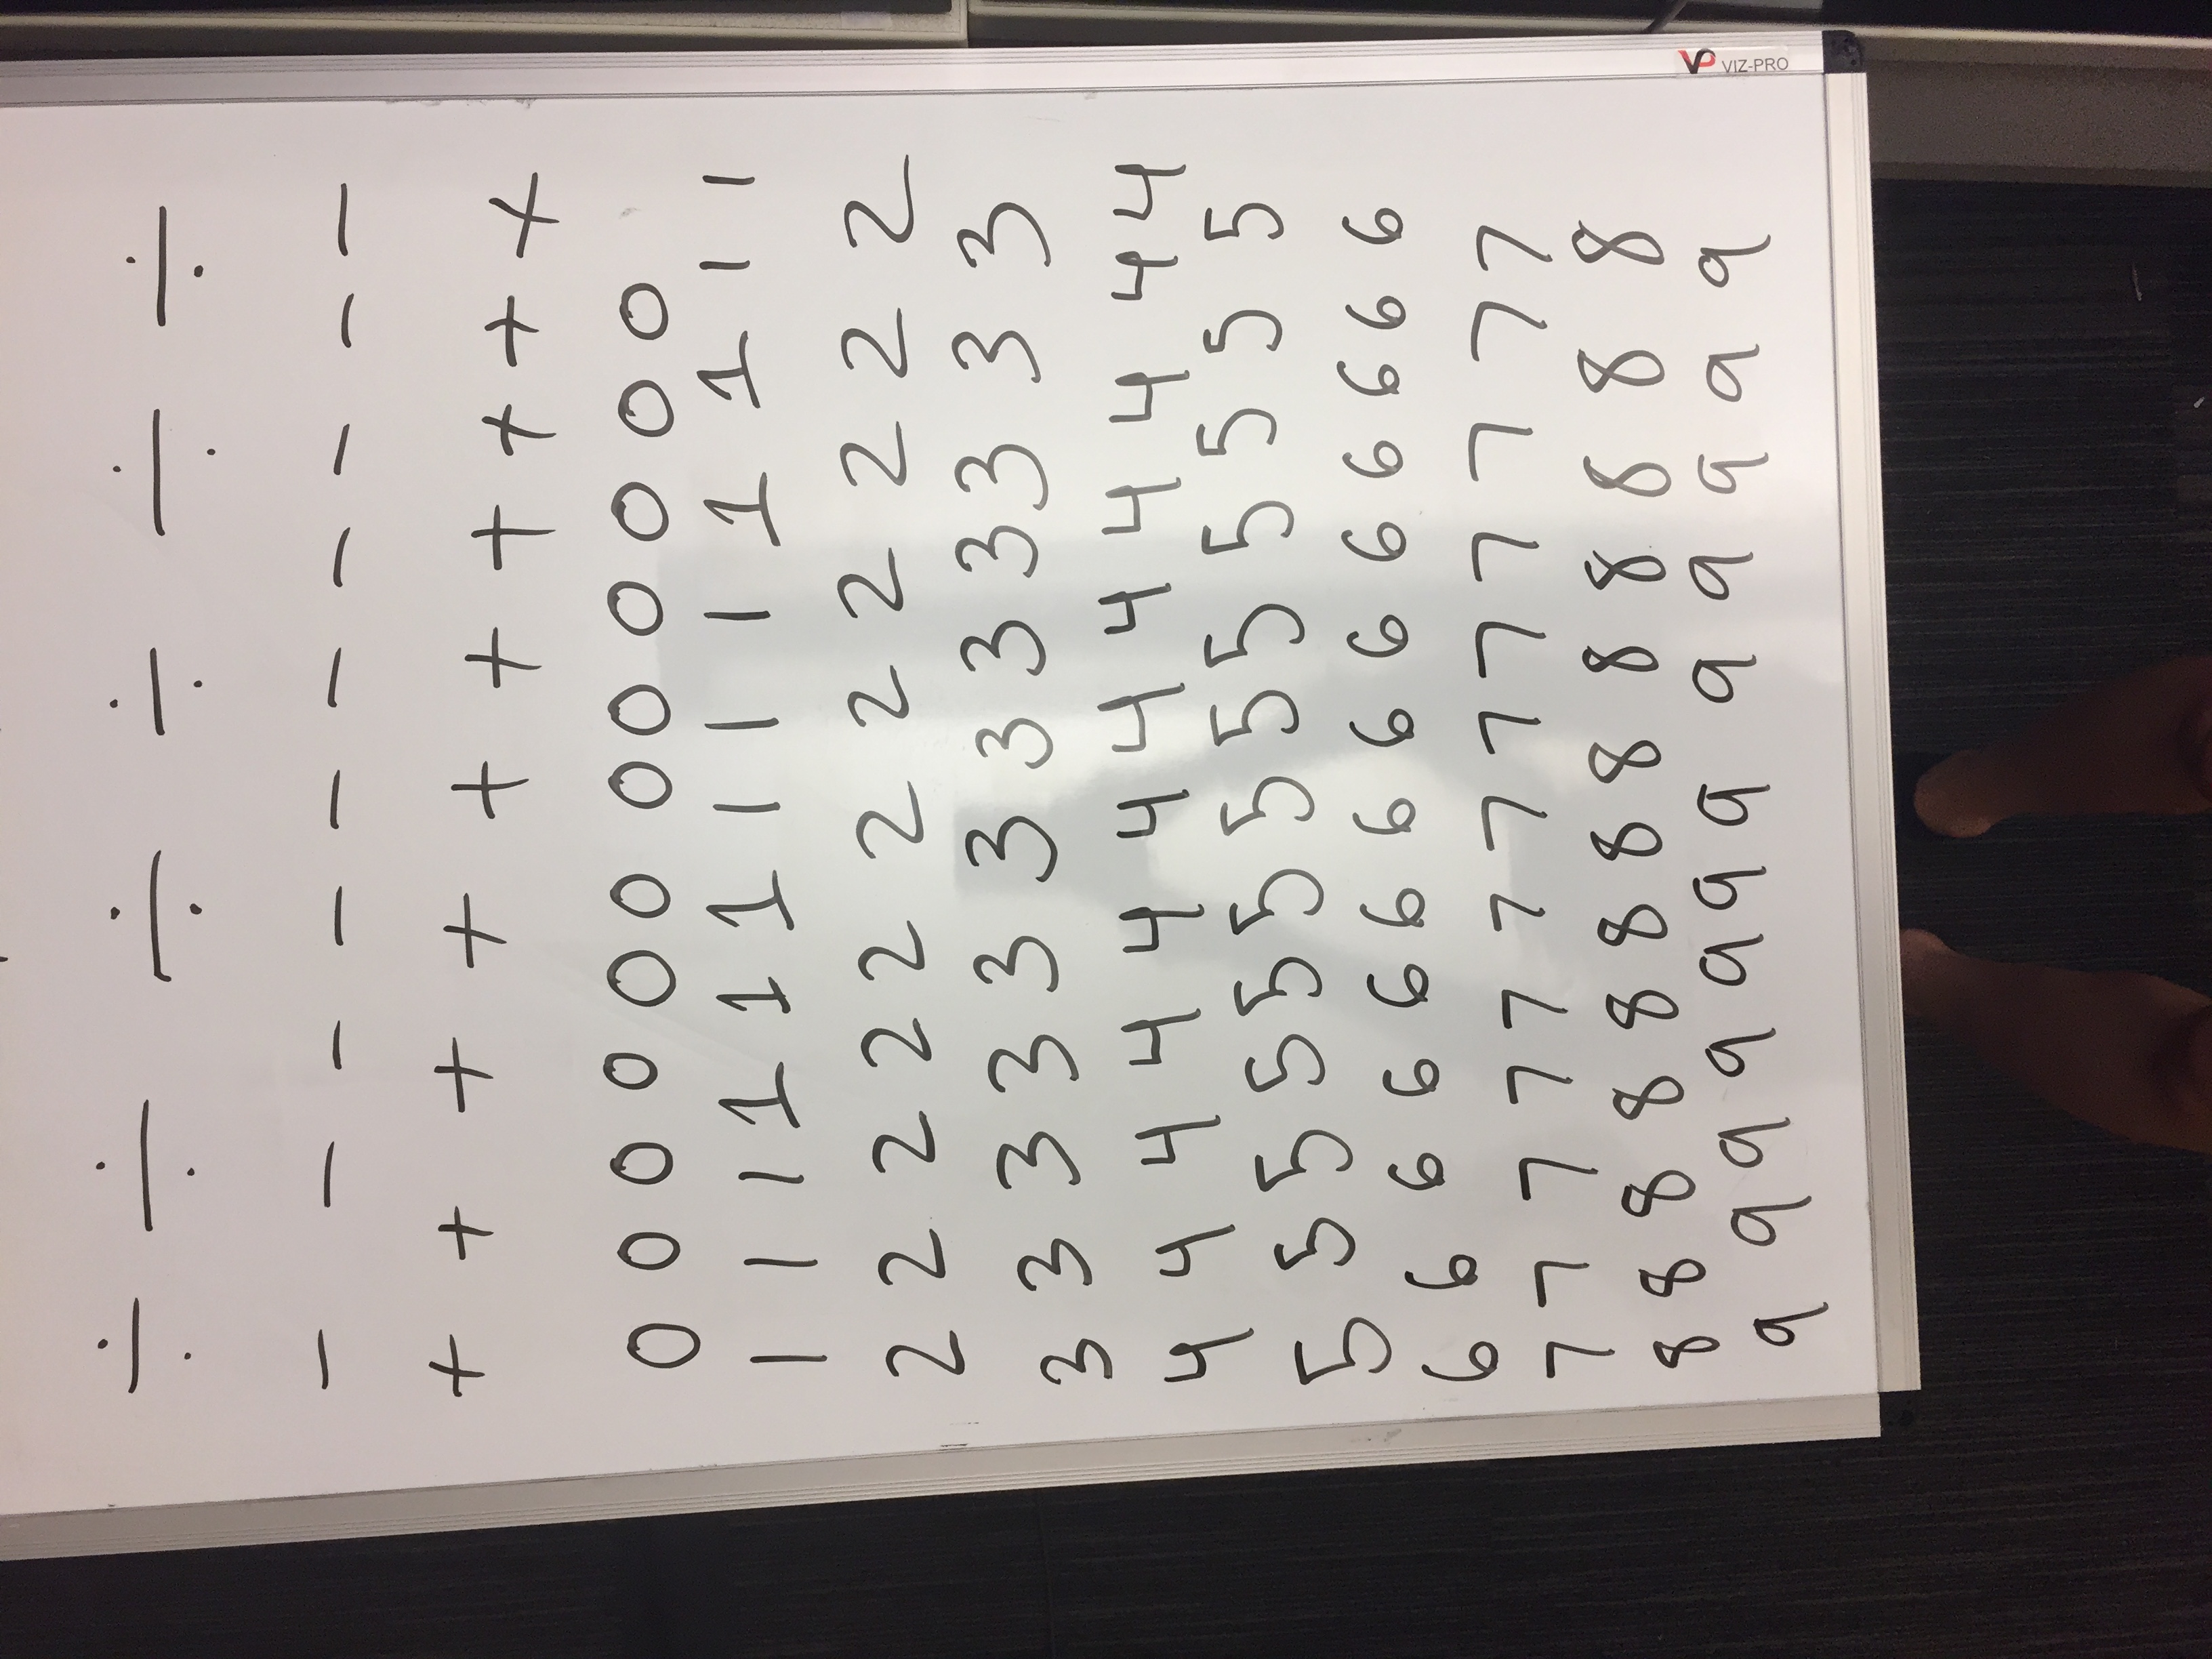 ÷ ÷ ÷ ÷ ÷ ÷
− − − − − − − − − −
+ + + + + + + + + +
0 0 0 0 0 0 0 0 0 0 0 0
1 1 1 1 1 1 1 1 1 1 1 1 1
2 2 2 2 2 2 2 2 2 2 2
3 3 3 3 3 3 3 3 3 3 3 3
4 4 4 4 4 4 4 4 4 4 4 4
5 5 5 5 5 5 5 5 5 5 5 5 5
6 6 6 6 6 6 6 6 6 6 6 6 6 6
7 7 7 7 7 7 7 7 7 7 7 7 7
8 8 8 8 8 8 8 8 8 8 8 8 8
9 9 9 9 9 9 9 9 9 9 9 9
VP VIZ-PRO